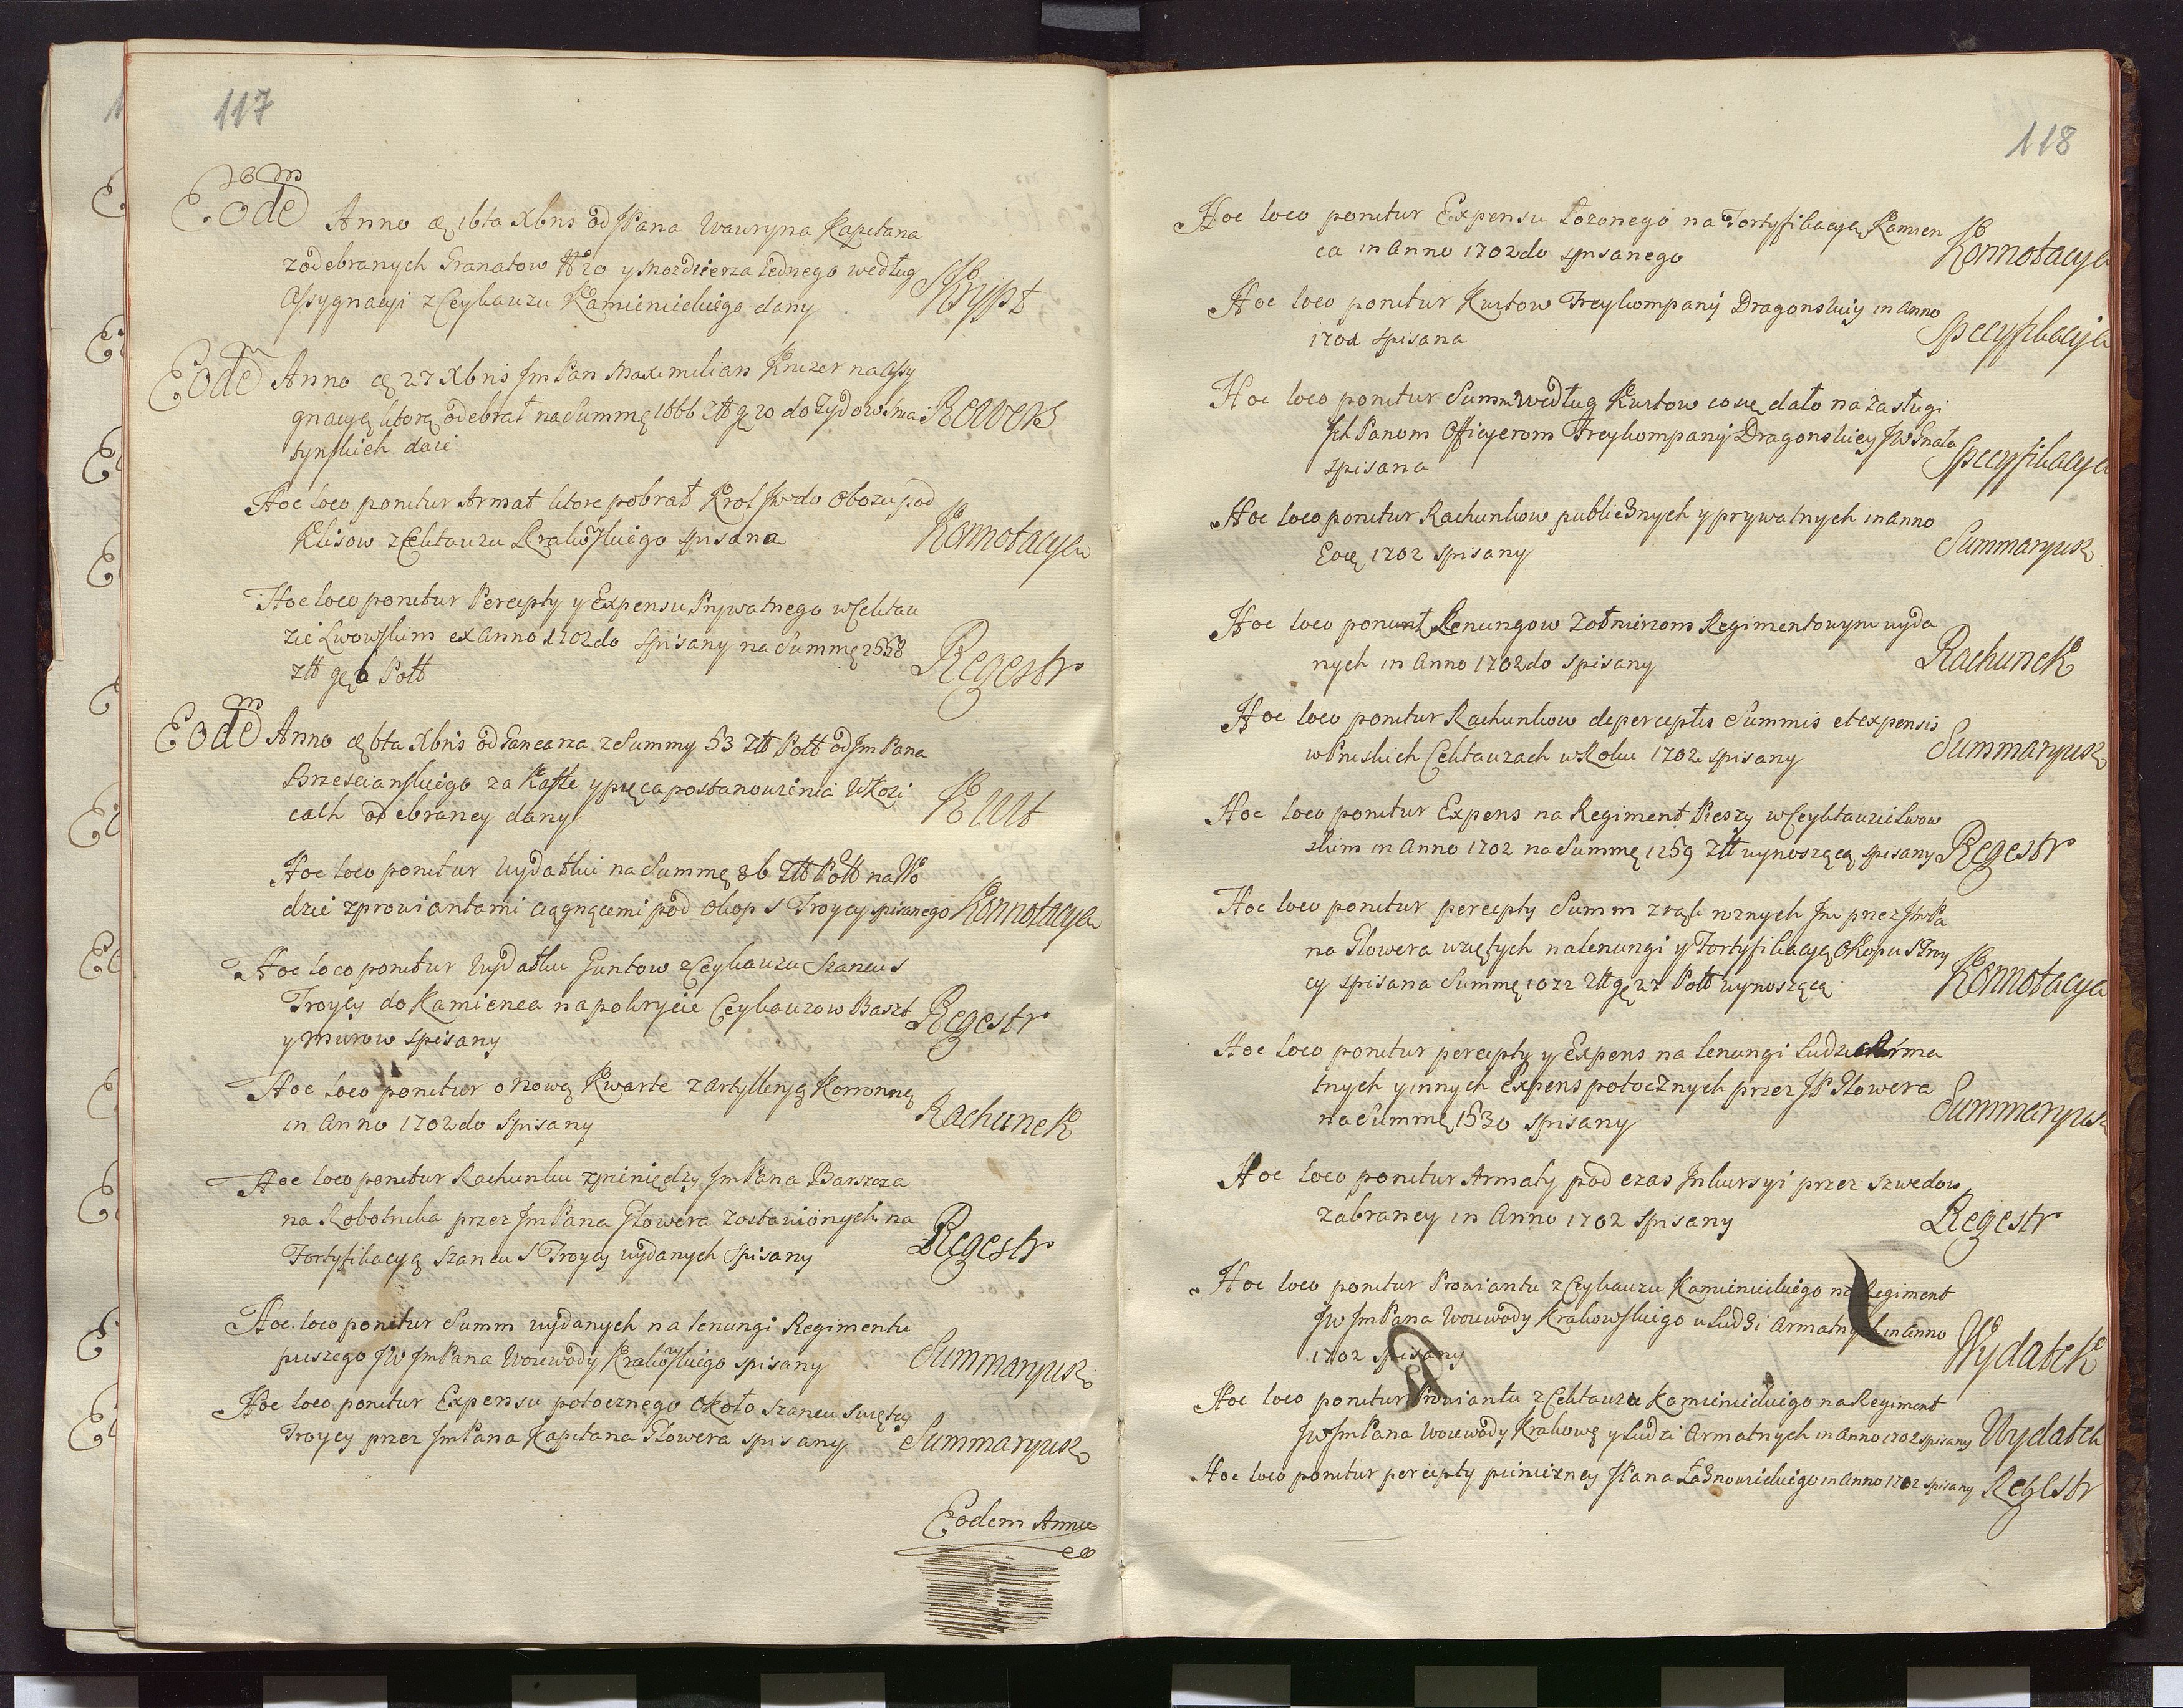 117
Eodem Anno 16ta Xbris od JPana Wawryna Kapitana
zodebranych Granatow No 20 y Mozdzierza Iednego według
Assygnacyi z Ceykauzu Kamienieckiego dany Skrypt
Eodem Anno 27 Xbris Jm Pan Maximilian Knezer na Assy
gnacyą ktorą odebrał na Summę 1666 Złł gr 20 do Zydow
tynskich daie Rewers
Hoc loco ponitur Armat ktore pobrał Krol Jm do Obozu pod
Kliszow z Cekauzu Krakowskiego spisana Konnotacya
Hoc loco ponitur Percepty y Expensu Prywatnego w Cekau
zie Lwowskim ex Anno 1702do spisany na Summę 2558
Złł gr 6 Poll Regestr
Eodem Anno 6ta Xbris od Gancarza z Summy 53 Złł Poll od Jm Pana
Brzescianskiego za Kafle y pieca postanowienia w Kozi
cach odebraney dany Kwit
Hoc loco ponitur Wydatku na Summę 86 Złł Poll na Wo
dzie z prowiantami ciągnącemi pod Okop S Troycy spisanego Konnotacya
Hoc loco ponitur Wydatku Guntow z Ceykauzu Szancu S
Troycy do Kamienca na pokrycie Ceykauzow Baszt
y murow spisany Regestr
Hoc loco ponitur o nową Kwarte z Artylleryą Koronną
in Anno 1702do spisany Rachunek
Hoc loco ponitur Rachunku z pieniędzy Jm Pana Barszcza
na Robotnika przez Jm Pana Glowera zostawionych na
Fortyfikacyą Szancu S Troycy wydanych spisany Regestr
Hoc loco ponitur Summ wydanych na lenungi Regimentu
pieszego JW Jm Pana Woiewody Krakowskiego spisany Summaryusz
Hoc loco ponitur Expensu potocznego około szancu Swiętey
Troycy przez Jm Pana Kapitana Glowera spisany Summaryusz
Eodem Anno
118
Hoc loco ponitur Expensu Łozonego na Fortyfikacyą Kamien
ca in Anno 1702do spisanego Konnotacya
Hoc loco ponitur Kurtow Freykompanij Dragonskiy in Anno
1702 spisana Specyfikacya
Hoc loco ponitur Summ według Kurtow co się dało na zasługi
Ich Panom Officyerom Freykompanij Dragonskiey
spisana Specyfikacya
Hoc loco ponitur Rachunkow publicznych y prywatnych in Anno
1702 spisany Summaryusz
Hoc loco ponunt Lenungow Zołnierzom Regimentowym wyda
nych in Anno 1702do spisany Rachunek
Hoc loco ponitur Rachunkow de perceptis Summis et expensis
w Pruskich Cekauzach w Roku 1702 spisany Summaryusz
Hoc loco ponitur Expens na Regiment Pieszy w Ceykauzie Lwow
skim in Anno 1702 na Summę 1259 Złł wynoszącą spisany Regestr
Hoc loco ponitur percepty Summ z rąk roznych Jm przez Jm Pa
na Glowera wziętych na lenungi y Fortyfikacyą Okopu S Troy
cy spisana Summę 1072 Złł gr 27 Poll wynoszącą Konnotacya
Hoc loco ponitur percepty y Expens na lenungi ludzi Arma
tnych y innych Expens potocznych przez JP Glowera
na Summę 1530 spisany Summaryusz
Hoc loco ponitur Armaty pod czas Inkursyi przez Szwedow
zabraney in Anno 1702 spisany Regestr
Hoc loco ponitur Prowiantu z Ceykauzu Kamienieckiego na Regiment
JW Jm Pana Woiewody Krakowskiego y Ludzi Armatnych in Anno
1702 spisany Wydatek
Hoc loco ponitur Prowiantu z Cekauza Kamienieckiego na Regiment
JW Jm Pana Woiewody Krakowę y Ludzi Armatnych in Anno 1702 spisany Wydatek
Hoc loco ponitur percepty pieniezney JPana in Anno 1702 spisany Regestr